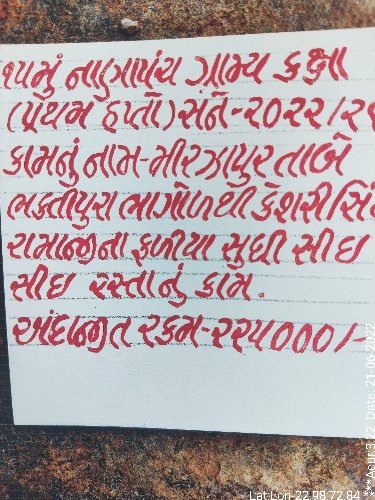 ૧૫મું નાણાપંચ ગ્રામ્ય કક્ષા
(પ્રથમ હપ્તો) સને-૨૦૨૨/૨૩
કામનું નામ-મીરઝાપુર તાબે
ભક્તીપુરા ભાગોળથી કેશરીસિં
રામાજીના ફળીયા સુધી સીઇ
સીઇ રસ્તાનું કામ.
અંદાજીત રકમ-૨૨૫૦૦૦/-
Lat:Lon-22.98:72.84 **
**Acur:3.22 Date: 21-06-2022